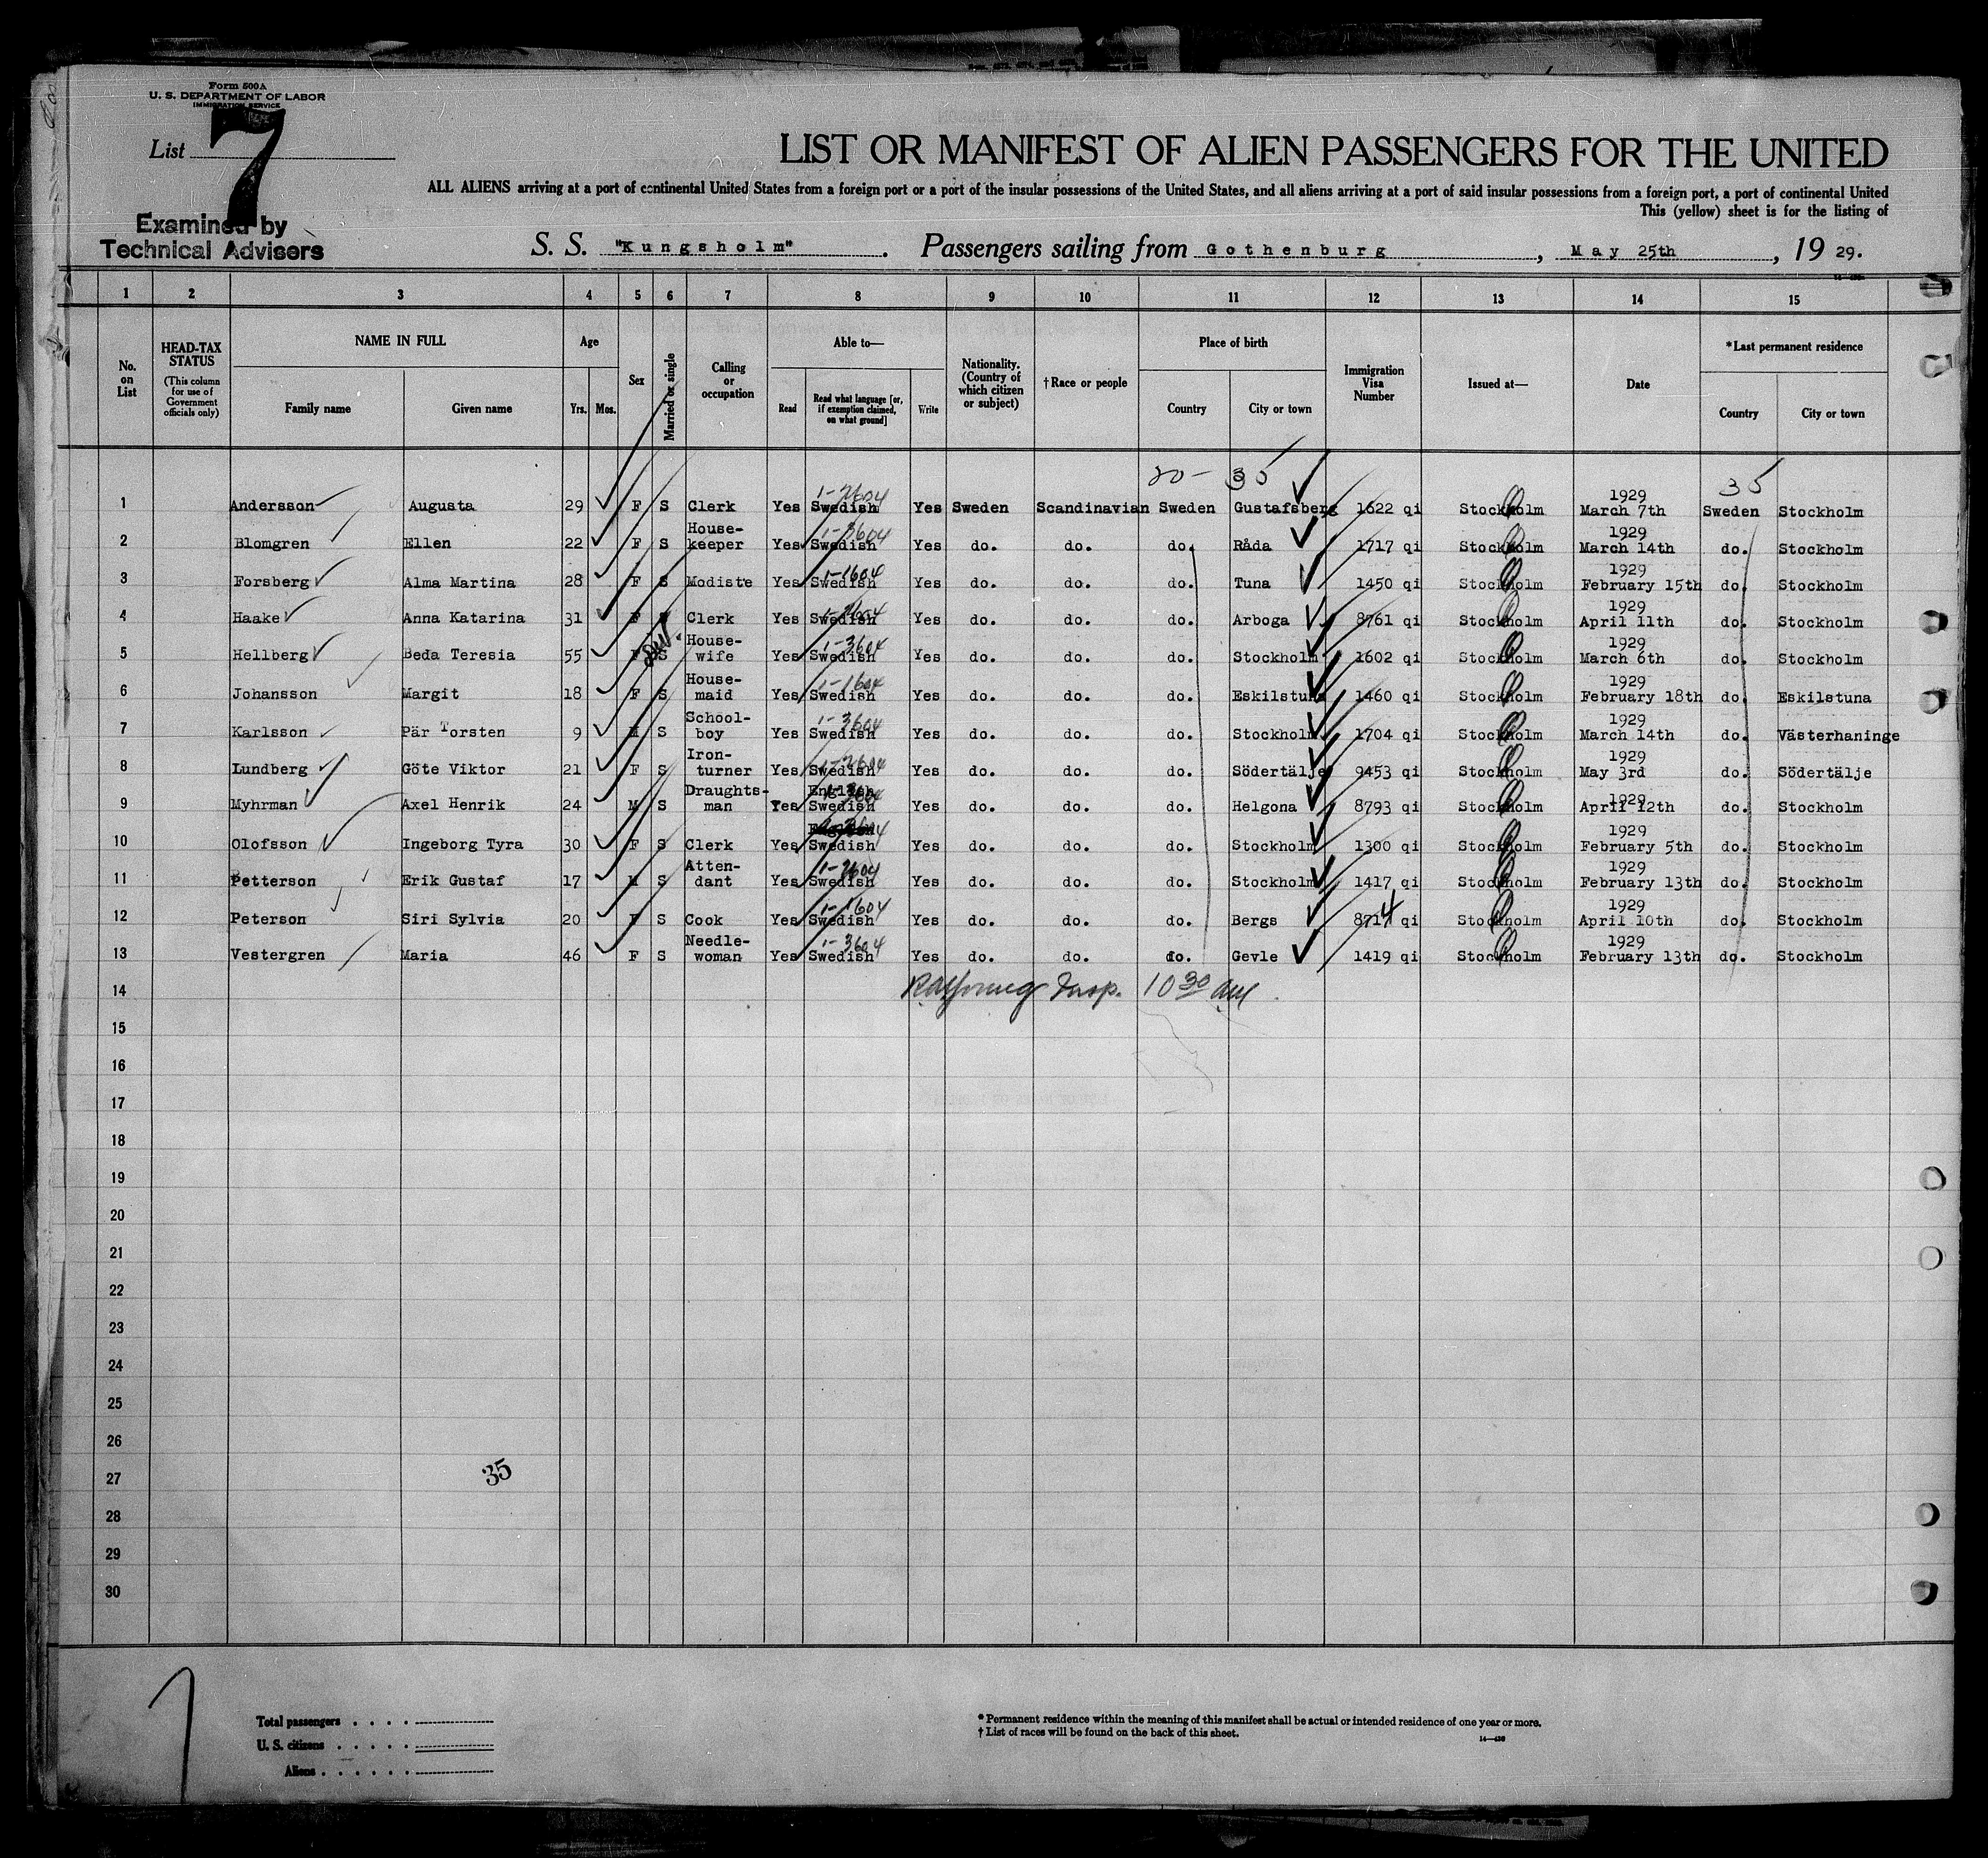 Form 500A
U. S. DEPARTMENT OF LABOR
IMMIGRATION SERVICE
List 7
LIST OR MANIFEST OF ALIEN PASSENGERS FOR THE UNITED
ALL ALIENS arriving at a port of continental United States from a foreign port or a port of the insular possessions of the United States, and all aliens arriving at a port of said insular possessions from a foreign port, a port of continental United
This (yellow) sheet is for the listing of
Examined by
Technical Advisers
S. S. "Kungsholm". Passengers sailing from Gothenburg, May 25th, 1929.
1 2 3 4 5 6 7 8 9 10 11 12 13 14 15
No. on List
HEAD-TAX STATUS (This column for use of Government officials only)
NAME IN FULL
Family name Given name
Age
Yrs. Mos.
Sex
Married or single
Calling or occupation
Able to—
Read Read what language [or, if exemption claimed, on what ground] Write
Nationality. (Country of which citizen or subject)
†Race or people
Place of birth
Country City or town
Immigration Visa Number
Issued at—
Date
*Last permanent residence
Country City or town
20 - 35 35
1 Andersson Augusta 29 F S Clerk Yes Swedish 1-2604 Yes Sweden Scandinavian Sweden Gustafsberg 1622 qi Stockholm 1929 March 7th Sweden Stockholm
2 Blomgren Ellen 22 F S House-keeper Yes Swedish 1-3604 Yes do. do. do. Råda 1717 qi Stockholm 1929 March 14th do. Stockholm
3 Forsberg Alma Martina 28 F S Modiste Yes Swedish 1-1604 Yes do. do. do. Tuna 1450 qi Stockholm 1929 February 15th do. Stockholm
4 Haake Anna Katarina 31 F Clerk Yes Swedish 1-2604 Yes do. do. do. Arboga 8761 qi Stockholm 1929 April 11th do. Stockholm
5 Hellberg Beda Teresia 55 F S House-wife Yes Swedish 1-3604 Yes do. do. do. Stockholm 1602 qi Stockholm 1929 March 6th do. Stockholm
6 Johansson Margit 18 F S House-maid Yes Swedish 1-1604 Yes do. do. do. Eskilstuna 1460 qi Stockholm 1929 February 18th do. Eskilstuna
7 Karlsson Pär Torsten 9 M S School-boy Yes Swedish 1-3604 Yes do. do. do. Stockholm 1704 qi Stockholm 1929 March 14th do. Västerhaninge
8 Lundberg Göte Viktor 21 F S Iron-turner Yes Swedish 1-2604 Yes do. do. do. Södertälje 9453 qi Stockholm 1929 May 3rd do. Södertälje
9 Myhrman Axel Henrik 24 M S Draughts-man Yes English Swedish Yes do. do. do. Helgona 8793 qi Stockholm 1929 April 12th do. Stockholm
10 Olofsson Ingeborg Tyra 30 F S Clerk Yes Swedish Yes do. do. do. Stockholm 1300 qi Stockholm 1929 February 5th do. Stockholm
11 Petterson Erik Gustaf 17 M S Atten-dant Yes Swedish 1-2604 Yes do. do. do. Stockholm 1417 qi Stockholm 1929 February 13th do. Stockholm
12 Peterson Siri Sylvia 20 F S Cook Yes Swedish 1-1604 Yes do. do. do. Bergs 8714 qi Stockholm 1929 April 10th do. Stockholm
13 Vestergren Maria 46 F S Needle-woman Yes Swedish 1-3604 Yes do. do. do. Gevle 1419 qi Stockholm 1929 February 13th do. Stockholm
14 Insp. 10 30 am
15
16
17
18
19
20
21
22
23
24
25
26
27 35
28
29
30
Total passengers
U. S. citizens
Aliens
* Permanent residence within the meaning of this manifest shall be actual or intended residence of one year or more.
† List of races will be found on the back of this sheet.